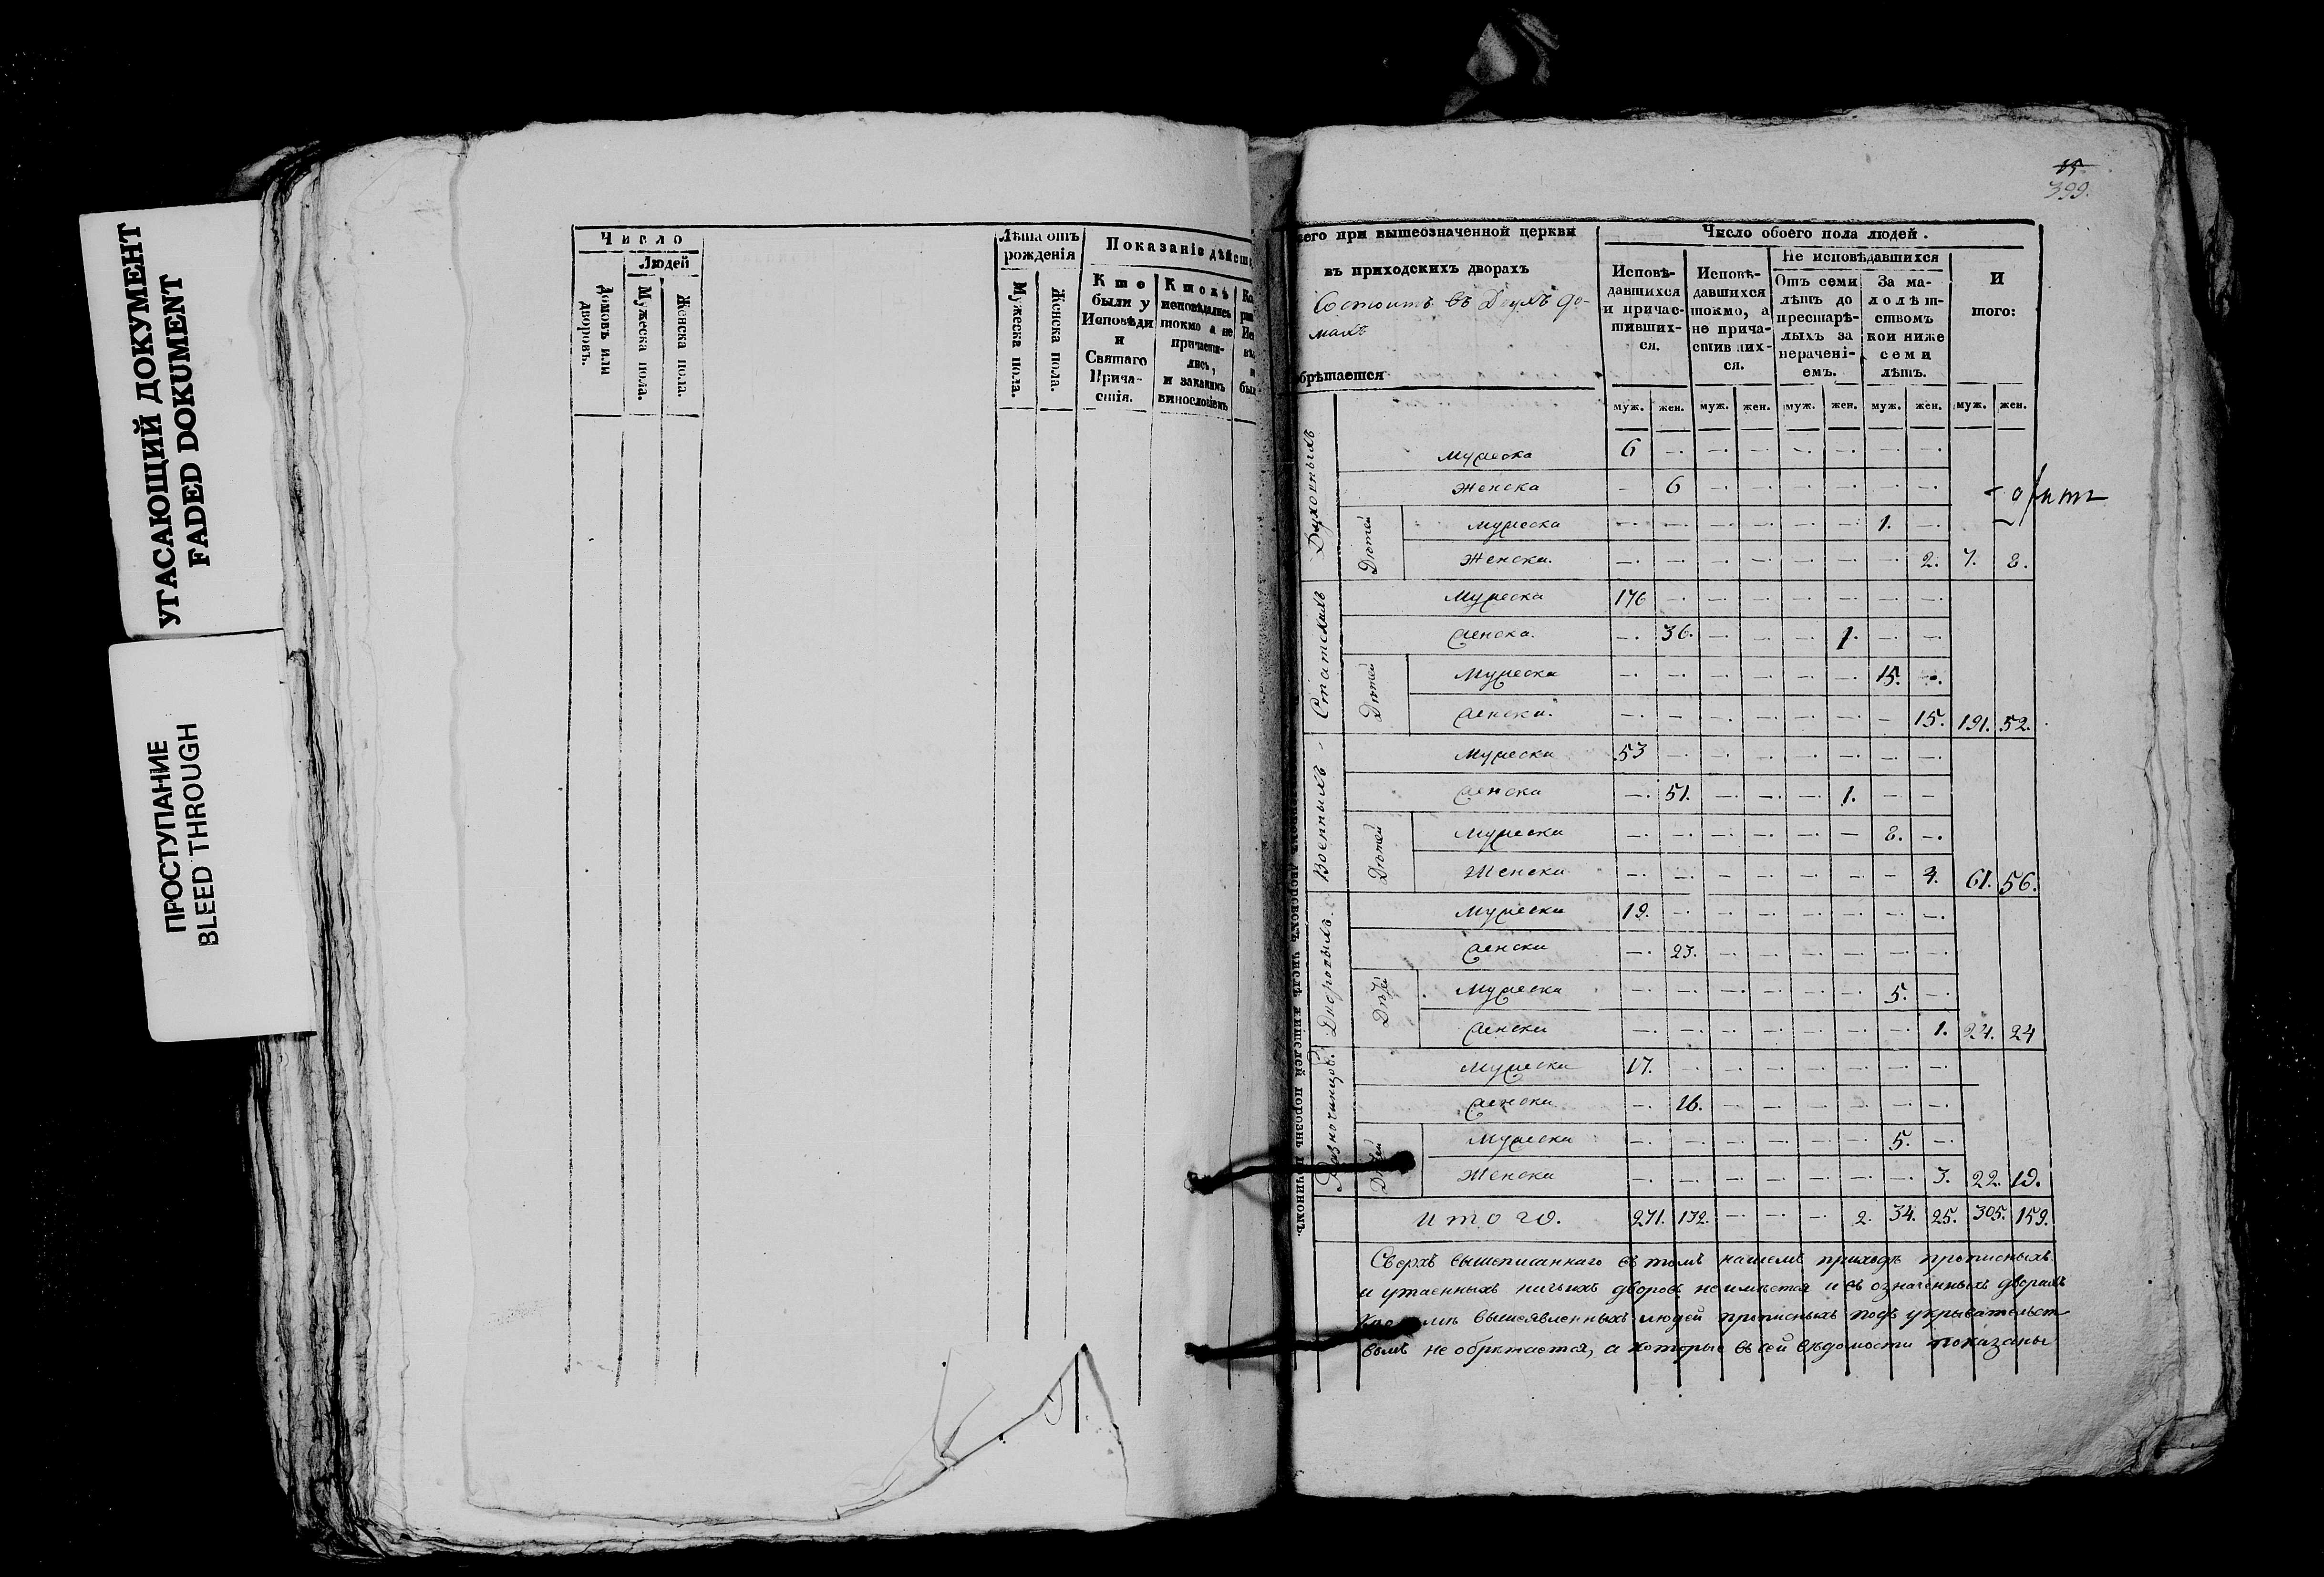 УГАСАЮЩИЙ ДОКУМЕНТ
FADED DOKUMENT
ПРОСТУПАНИЕ
BLEED THROUGH
Число
Людей
Домовъ или
дворовъ.
Мужеска пола.
Женска пола.
Лѣта отъ
рожденія
Мужеска пола.
Женска пола.
Показаніе дѣйств
Кто
были у
Исповѣди
и
Святаго
Прича-
стія.
исповѣдались
токмо а не
причасти-
лись,
и закакимъ
винословіемъ
15
399.
него при вышеозначенной церкви
въ приходскихъ дворахъ
Состоитъ въ Двухъ до-
махъ
обрѣтается
Число обоего пола людей.
Исповѣ-
давшихся
и причас-
тивших-
ся.
Исповѣ-
давшихся
токмо, а
не прича-
стивших-
ся.
Не исповѣдавшихся
Отъ семи
лѣтъ до
престарѣ-
лыхъ за
нерачені-
емъ.
За ма-
лолѣт-
ствомъ
кои ниже
семи
лѣтъ.
И
того:
муж. жен. муж. жен. муж. жен. муж. жен. муж. жен.
Духовныхъ
Мужеска 6 — — — — — — —
Женска — 6 — — — — — —
Дѣтей
Мужеска — — — — — — 1. —
Женска. — — — — — — — 2. 7. 8.
Статскихъ
Мужеска 176 — — — — — — —
Женска. — 36. — — — 1. — —
Дѣтей
Мужеска — — — — — — 15. —
Женска. — — — — — — — 15. 191. 52.
Военныхъ
Мужеска 53 — — — — — — —
Женска — 51. — — — 1. — —
Дѣтей
Мужеска — — — — — — 8. —
Женска — — — — — — — 4. 61. 56.
Дворовыхъ
Мужеска 19. — — — — — — —
Женска — 23. — — — — — —
Дѣтей
Мужеска — — — — — — 5. —
Женска — — — — — — — 1. 24. 24
Разночинцовъ.
Мужеска 17. — — — — — — —
Женска — 16. — — — — — —
Дѣтей
Мужеска — — — — — — 5. —
Женска — — — — — — — 3. 22. 19.
Итого. 271. 132. — — — 2. 34. 25. 305. 159.
Сверхъ вышеписаннаго въ томъ нашемъ приходѣ прописныхъ
и утаенныхъ ничьихъ дворовъ неимѣется и въ означенныхъ дворахъ
вышеявленныхъ людей прописныхъ подъ укрывательст
вомъ не обрѣтается, а которые въ сей вѣдомости показаны